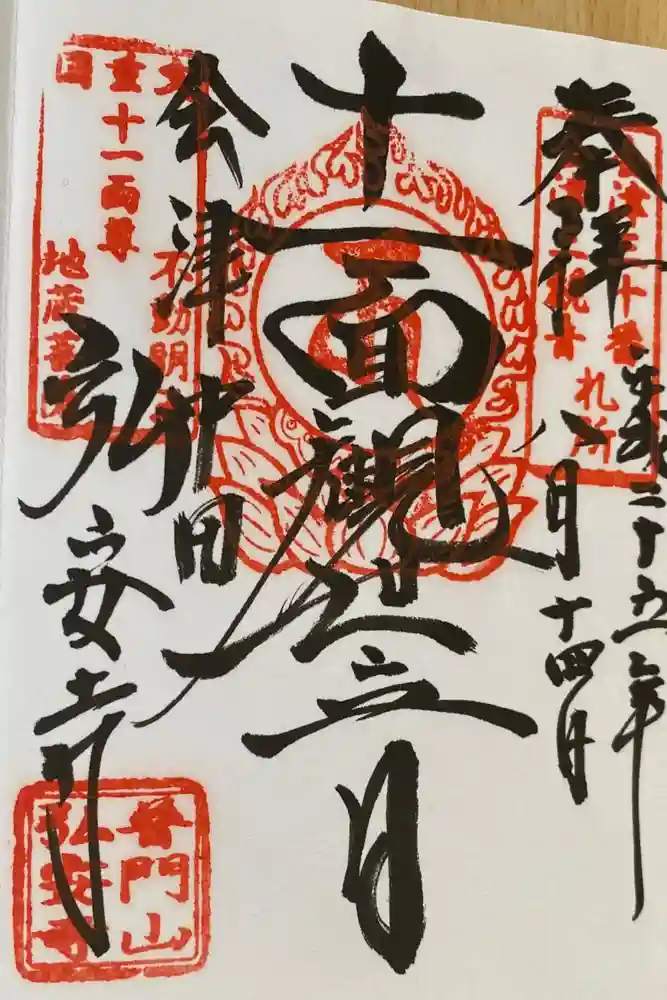 奉拝
平成二十五年
八月十四日
十一面観世音
会津中田
弘安寺
会津三十番
札所
重十一面尊
不動明
地蔵菩
普門山
弘安寺